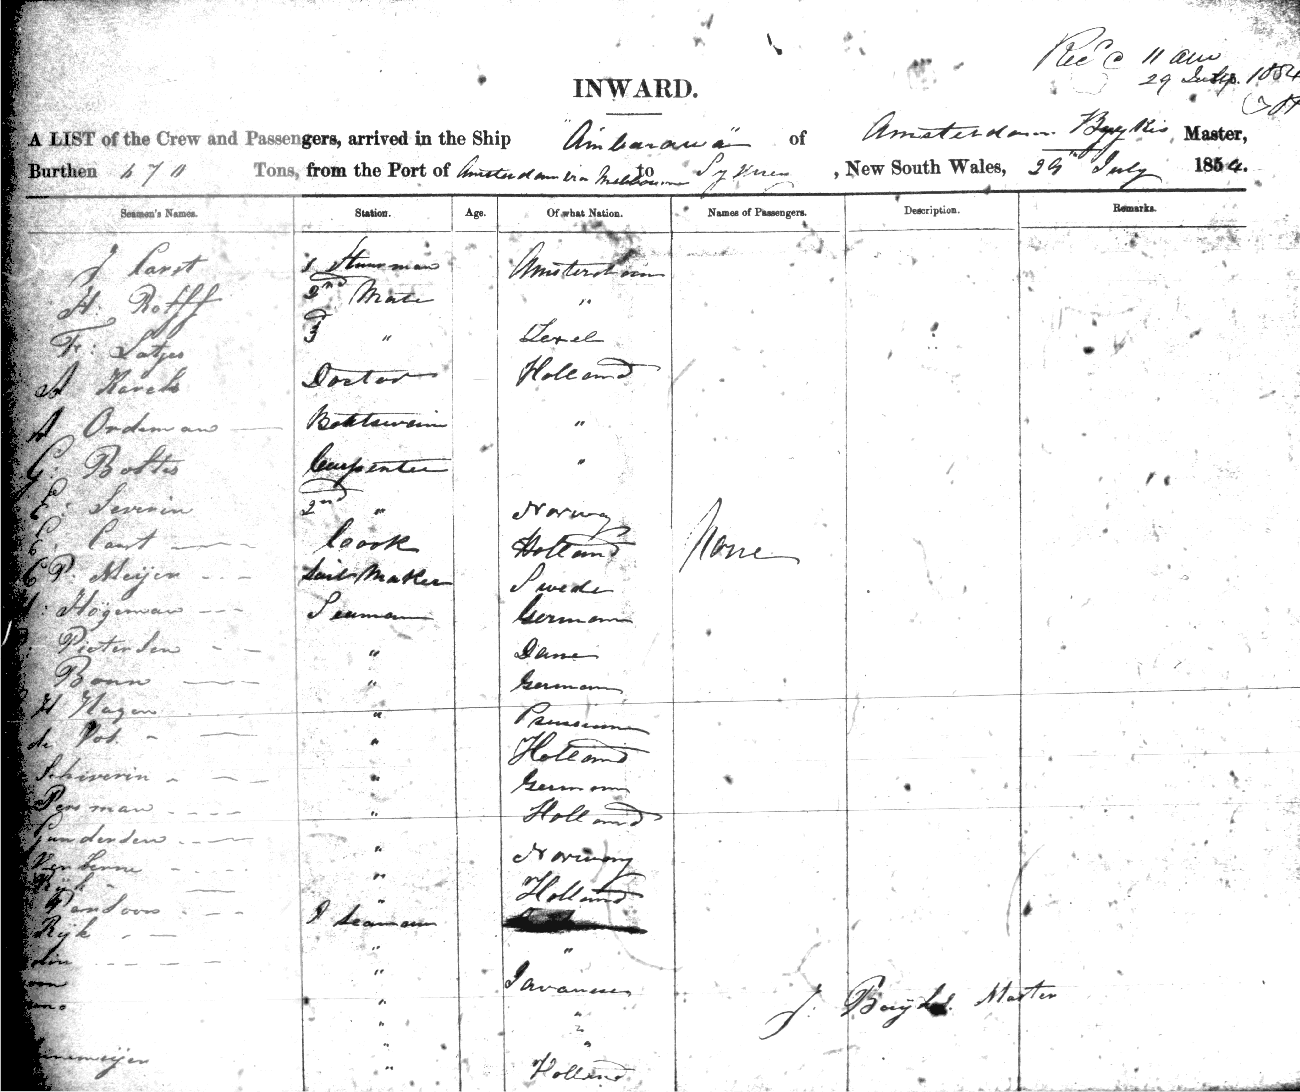 Rec'd 11 am
29 July. 1854
INWARD.
A LIST of the Crew and Passengers, arrived in the Ship "Ambarawa" of Amsterdam Master,
Burthen 670 Tons, from the Port of Amsterdam via Melbourne to Sydney, New South Wales, 29th July 1854.
Seamen's Names. Station. Age. Of what Nation. Names of Passengers. Description. Remarks.
J Carst 1 Stuurman Amsterdam
H. Rolff 2nd Mate "
Fr: Latjes 3d " Texel
A Karels Doctor Holland
A Ordeman Boatswain "
G: Boltes Carpenter "
E: Severin 2nd " Norway
Coook Holland None
C P. Meijer Sail Maker Swede
Högeman Seaman German
Pietersen " Dane
Bonn " German
H Hagen " Prussian
de Vos. " Holland
Schiverin " German
Persman " Holland
Gundersen " Norway
" Holland
2 Seaman
Rijk " "
" Javanese
" "
" "
" Holland
J. Master